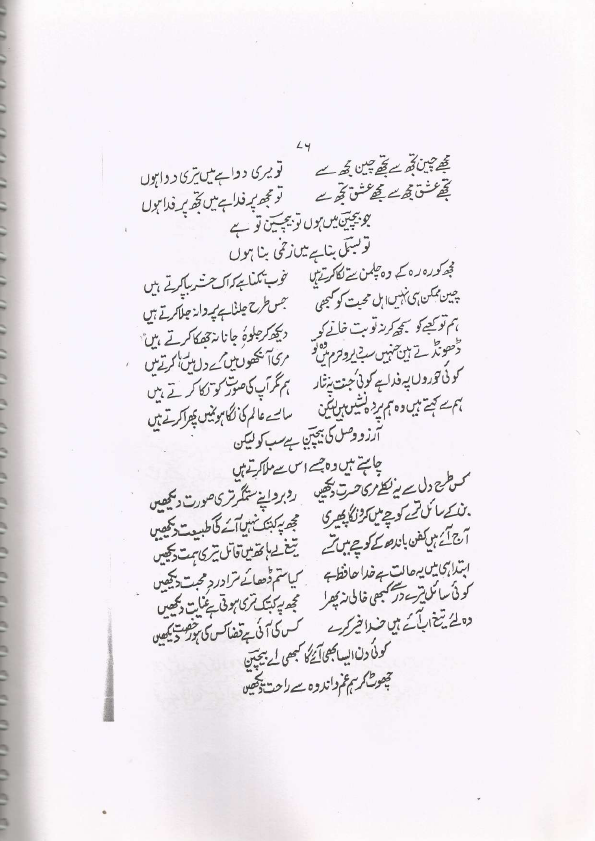 ۷۶
مجھے چین تجھ سے تجھے چین مجھ سے تو میری دوا ہے میں تیری دوا ہوں
تجھے عشق مجھ سے مجھے عشق تجھ سے تو مجھ پر فدا ہے میں تجھ پر فدا ہوں
جو بیچین میں ہوں تو بیچین تو ہے
تو بسمل بنا ہے میں زخمی بنا ہوں
مجھ کو رہ رہ کے وہ چلمن سے لگا کرتے ہیں خوب تکنا ہے کہ اک حشر بپا کرتے ہیں
چین ممکن ہی نہیں اہل محبت کو کبھی جس طرح جلتا ہے پروانہ جلا کرتے ہیں
ہم تو کعبے کو سمجھ کر نہ تو بت خانے کو دیکھ کر جلوۂ جانانہ جھکا کرتے ہیں
ڈھونڈتے ہیں جنہیں سب دیر و حرم میں وہ تو مری آنکھوں میں مرے دل میں رہا کرتے ہیں
کوئی حوروں پہ فدا ہے کوئی جنت پہ نثار ہم مگر آپ کی صورت کو تکا کرتے ہیں
ہم سے کہتے ہیں وہ ہم پردہ نشیں ہیں لیکن سارے عالم کی نگاہوں میں پھرا کرتے ہیں
آرزو وصل کی بیچین ہے سب کو لیکن
چاہتے ہیں وہ جسے اس سے ملا کرتے ہیں
کس طرح دل سے یہ نکلے مری حسرت دیکھیں روبرو اپنے ستمگر تری صورت دیکھیں
بن کے سائل ترے کوچے میں کروں گا پھیری مجھ پہ کب تک نہیں آئے گی طبیعت دیکھیں
آج آئے ہیں کفن باندھ کے کوچے میں ترے تیغ لے ہاتھ میں قاتل تیری ہمت دیکھیں
ابتدا ہی میں یہ حالت ہے خدا حافظ ہے کیا ستم ڈھائے ترا درد محبت دیکھیں
کوئی سائل تیرے در سے کبھی خالی نہ پھرا مجھ پہ کب تک تری ہوتی ہے عنایت دیکھیں
وہ لئے تیغ اب آئے ہیں خدا خیر کرے کس کی آئی ہے قضا کس کی ہو رخصت دیکھیں
کوئی دن ایسا بھی آئے گا کبھی اے بیچین
چھوٹ کر ہم غم و اندوہ سے راحت دیکھیں